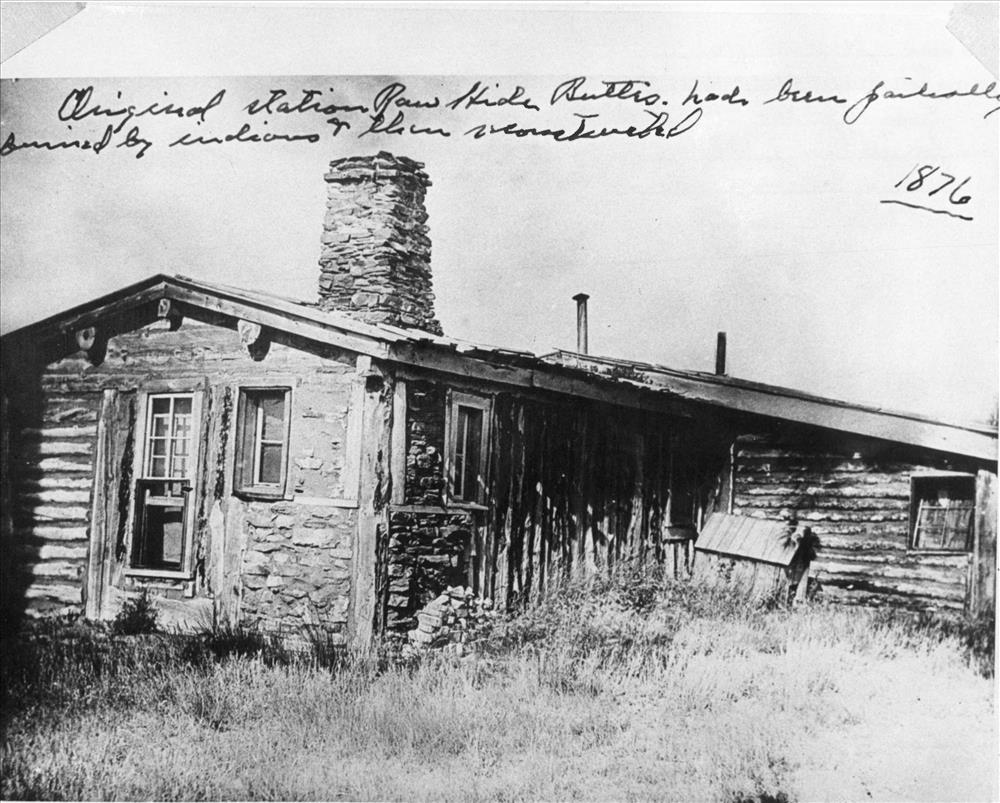 Original station Raw Hide Buttes. had been partially
burned by indians & then reconstructed
1876